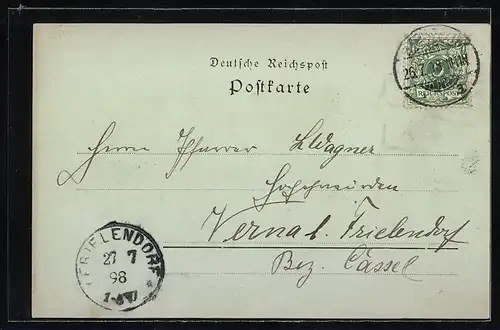 Deutsche Reichspost
Postkarte
REICHSPOST
Herrn Pfarrer Wagner
Hochwürden
Verna b. Frielendorf
Bez. Cassel
FRIELENDORF
27 7
98